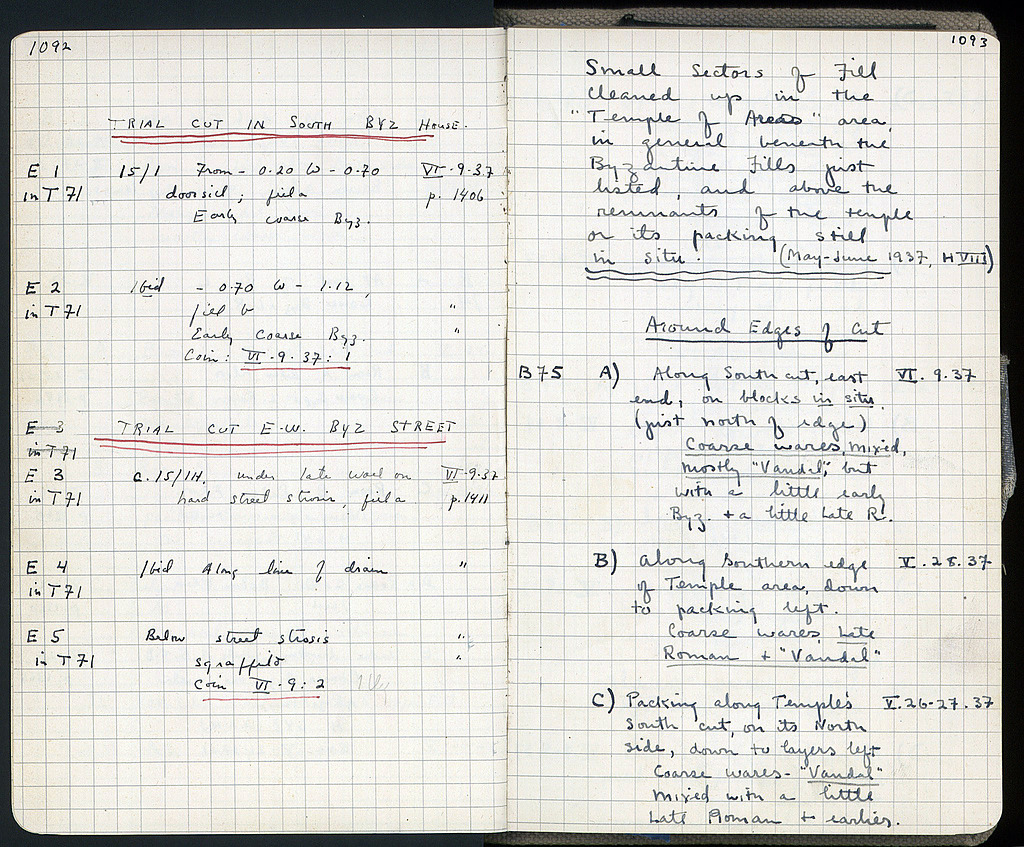 1092
TRIAL CUT IN SOUTH BYZ HOUSE.
E 1 15/1 From - 0.20 to - 0.70 VI.9.37
in T 71 doorsill; fill a p. 1406
Early coarse Byz.
E 2 Ibid - 0.70 to - 1.12,
in T 71 fill b "
Early coarse Byz. "
Coin: VI.9.37: 1
E 3
in T 71
TRIAL CUT E-W. BYZ STREET
E 3 c. 15/1H, under late wall on VI.9.37
in T 71 hard street strosis, fill a p. 1411
E 4 Ibid Along line of drain "
in T 71
E 5 Below street strosis "
in T 71 sgraffito "
Coin VI.9: 2
1093
Small Sectors of Fill
cleaned up in the
"Temple of Ares" area,
in general beneath the
Byzantine Fills just
listed, and above the
remnants of the temple
or its packing still
in situ. (May-June 1937, H VIII)
Around Edges of Cut
B 75 A) Along South cut, east VI. 9.37
end, on blocks in situ
(just north of edge)
Coarse wares, mixed,
mostly "Vandal", but
with a little early
Byz. + a little Late R.
B) Along Southern edge V. 28.37
of Temple area, down
to packing left.
Coarse wares, Late
Roman + "Vandal"
C) Packing along Temple's V. 26-27.37
South cut, on its North
side, down to layers left
Coarse wares - "Vandal"
mixed with a little
Late Roman + earlier.